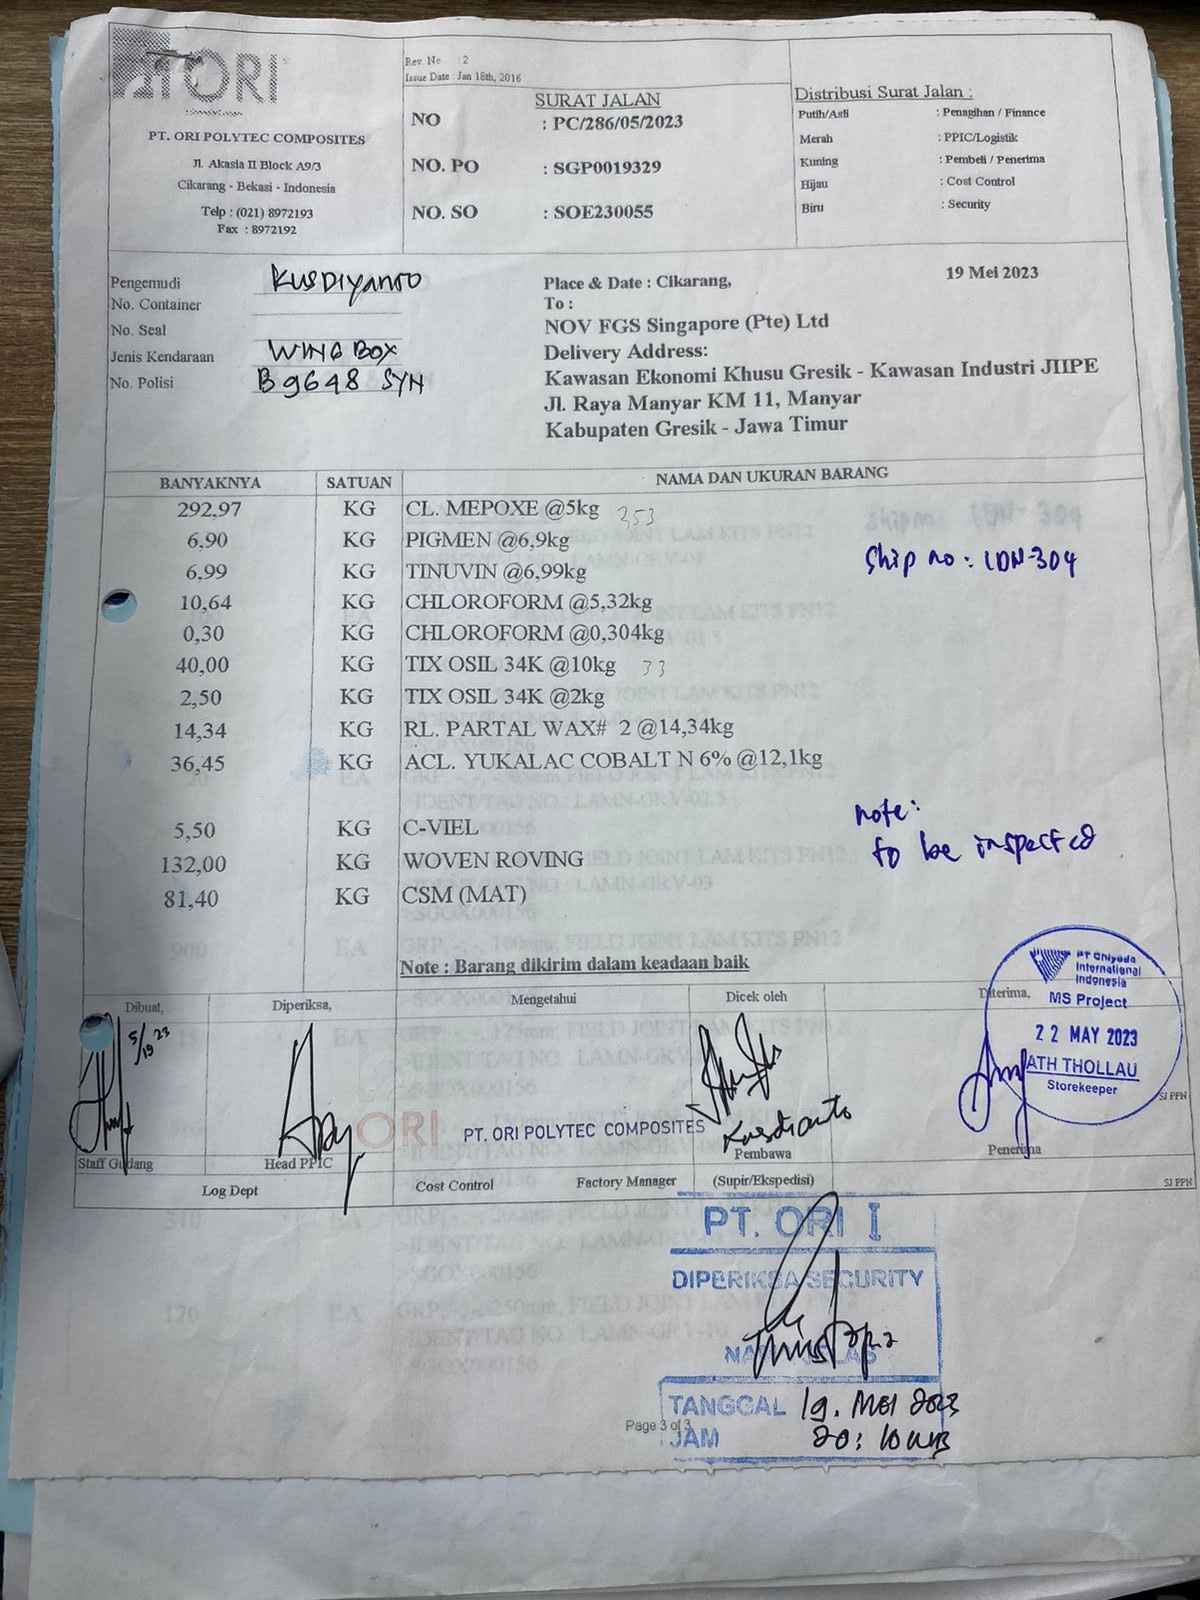 ORI
PT. ORI POLYTEC COMPOSITES
Jl. Akasia II Block A9/3
Cikarang - Bekasi - Indonesia
Telp : (021) 8972193
Fax : 8972192
Rev. No : 2
Issue Date : Jan 18th, 2016
SURAT JALAN
NO : PC/286/05/2023
NO. PO : SGP0019329
NO. SO : SOE230055
Distribusi Surat Jalan :
Putih/Asli : Penagihan / Finance
Merah : PPIC/Logistik
Kuning : Pembeli / Penerima
Hijau : Cost Control
Biru : Security
Pengemudi KUSDIYANTO
No. Container
No. Seal
Jenis Kendaraan WING BOX
No. Polisi B 9648 SYN
Place & Date : Cikarang, 19 Mei 2023
To :
NOV FGS Singapore (Pte) Ltd
Delivery Address:
Kawasan Ekonomi Khusu Gresik - Kawasan Industri JIIPE
Jl. Raya Manyar KM 11, Manyar
Kabupaten Gresik - Jawa Timur
BANYAKNYA SATUAN NAMA DAN UKURAN BARANG
292,97 KG CL. MEPOXE @5kg 353
6,90 KG PIGMEN @6,9kg
6,99 KG TINUVIN @6,99kg
Ship no: IDN-304
10,64 KG CHLOROFORM @5,32kg
0,30 KG CHLOROFORM @0,304kg
40,00 KG TIX OSIL 34K @10kg 33
2,50 KG TIX OSIL 34K @2kg
14,34 KG RL. PARTAL WAX# 2 @14,34kg
36,45 KG ACL. YUKALAC COBALT N 6% @12,1kg
note:
to be inspected
5,50 KG C-VIEL
132,00 KG WOVEN ROVING
81,40 KG CSM (MAT)
900 EA GRP; -, -, 100mm, FIELD JOINT LAM KITS PN12
Note : Barang dikirim dalam keadaan baik
Dibuat, Diperiksa, Mengetahui Dicek oleh Diterima,
5/19 23
PT Chiyoda
International
Indonesia
MS Project
22 MAY 2023
ATH THOLLAU
Storekeeper
ORI PT. ORI POLYTEC COMPOSITES
Kusdianto
SJ PPN
Staff Gudang Head PPIC Pembawa Penerima
Log Dept Cost Control Factory Manager (Supir/Ekspedisi) SJ PPN
PT. ORI I
DIPERIKSA SECURITY
NAMA JELAS
TANGGAL 19. MEI 2023
JAM 20:10 WIB
Page 3 of 3